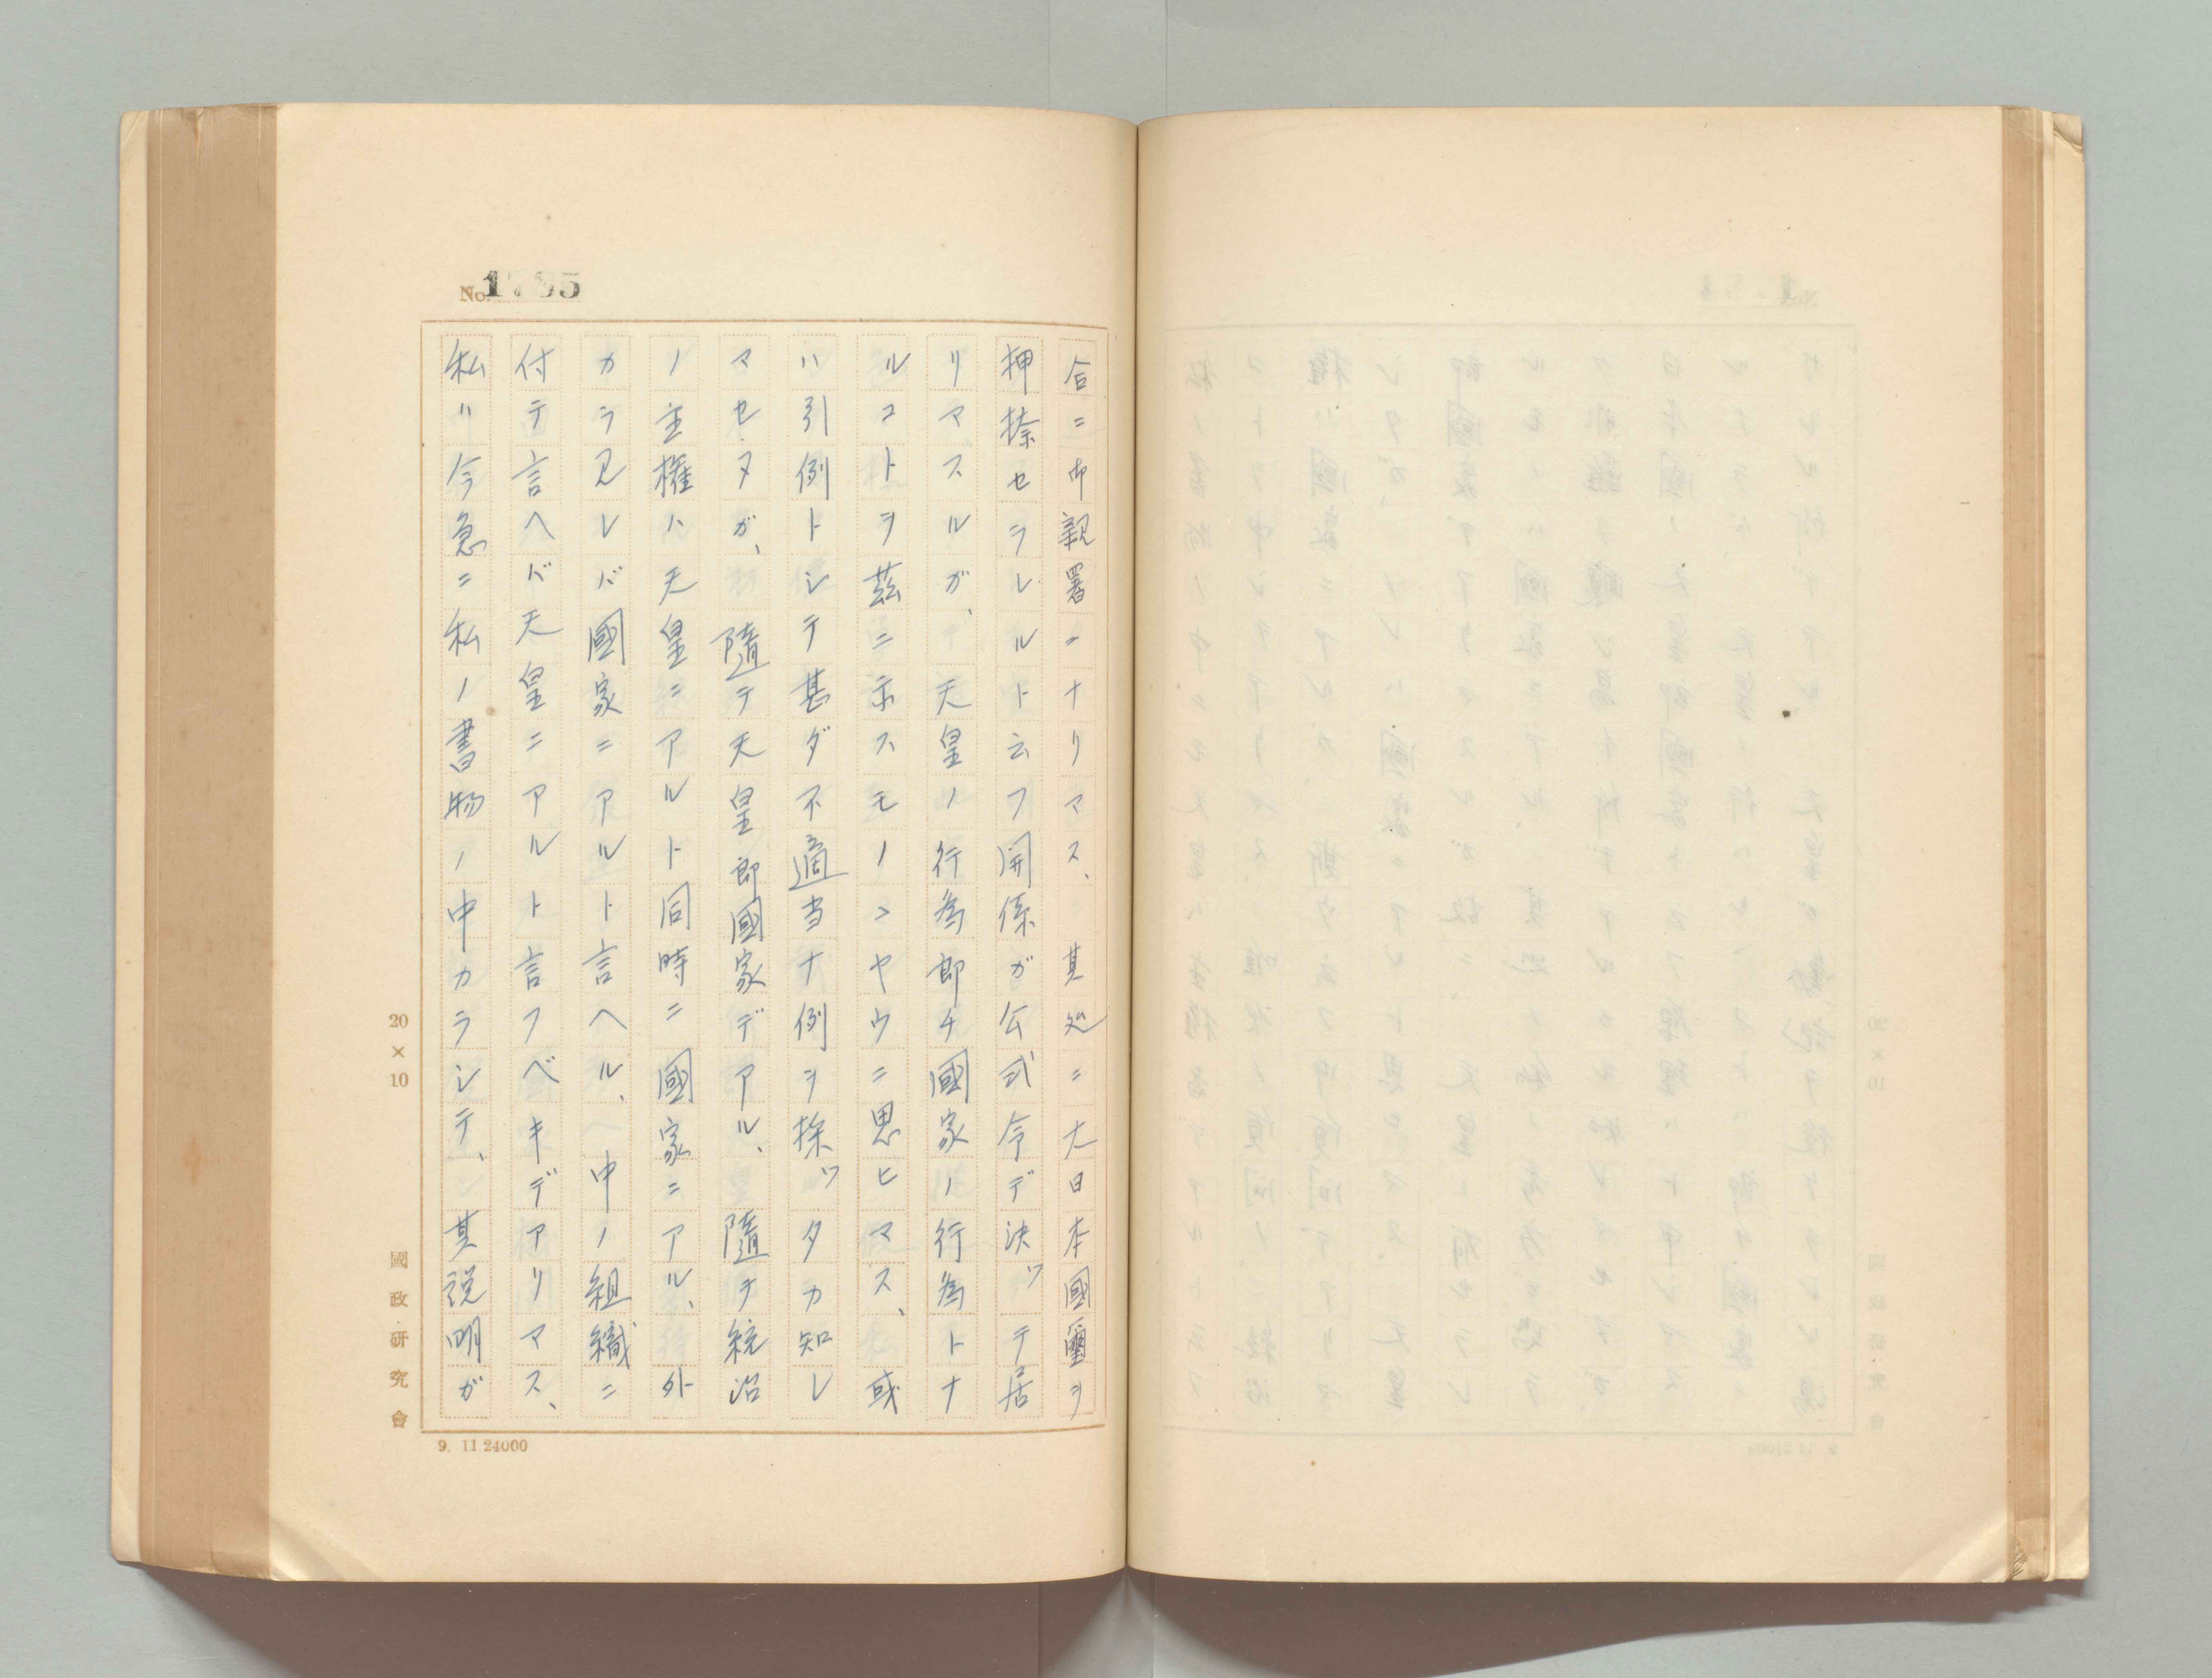 No. 1795
合ニ御親署ニナリマス、其処ニ大日本國璽ヲ
押捺セラレルト云フ関係ガ公式令デ決ツテ居
リマスルガ、天皇ノ行為即チ國家ノ行為トナ
ルコトヲ茲ニ示スモノノヤウニ思ヒマス、或
ハ引例トシテ甚ダ不適当ナ例ヲ採ツタカ知レ
マセヌガ、隨テ天皇即國家デアル、隨テ統治
ノ主権ハ天皇ニアルト同時ニ國家ニアル、外
カラ見レバ國家ニアルト言ヘル、中ノ組織ニ
付テ言ヘバ天皇ニアルト言フベキデアリマス、
私ハ今急ニ私ノ書物ノ中カラシテ、其説明ガ
20×10
國政研究會
9. 11 24000